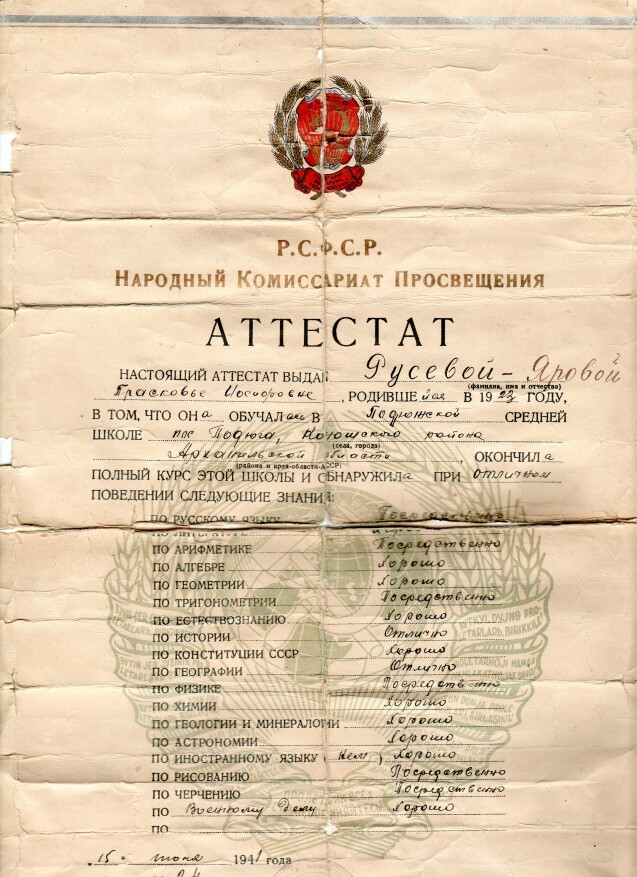 Р.С.Ф.С.Р.
НАРОДНЫЙ КОМИССАРИАТ ПРОСВЕЩЕНИЯ
АТТЕСТАТ
НАСТОЯЩИЙ АТТЕСТАТ ВЫДАН Русевой - Яровой
(фамилия, имя и отчество)
Прасковье, РОДИВШЕЙСЯ В 1923 ГОДУ,
В ТОМ, ЧТО ОНА ОБУЧАЛАСЬ В Подюжской СРЕДНЕЙ
ШКОЛЕ пос Подюга, Коношского района
(села, города)
Архангельской области, ОКОНЧИЛА
(района и края-области-АССР)
ПОЛНЫЙ КУРС ЭТОЙ ШКОЛЫ И ОБНАРУЖИЛА ПРИ отличном
ПОВЕДЕНИИ СЛЕДУЮЩИЕ ЗНАНИЯ:
ПО РУССКОМУ ЯЗЫКУ Посредственно
ПО ЛИТЕРАТУРЕ
ПО АРИФМЕТИКЕ Посредственно
ПО АЛГЕБРЕ Хорошо
ПО ГЕОМЕТРИИ Хорошо
ПО ТРИГОНОМЕТРИИ Посредственно
ПО ЕСТЕСТВОЗНАНИЮ Хорошо
ПО ИСТОРИИ Отлично
ПО КОНСТИТУЦИИ СССР Хорошо
ПО ГЕОГРАФИИ Отлично
ПО ФИЗИКЕ Посредственно
ПО ХИМИИ Хорошо
ПО ГЕОЛОГИИ И МИНЕРАЛОГИИ Хорошо
ПО АСТРОНОМИИ Хорошо
ПО ИНОСТРАННОМУ ЯЗЫКУ (нем) Хорошо
ПО РИСОВАНИЮ Посредственно
ПО ЧЕРЧЕНИЮ Посредственно
ПО Военному делу Хорошо
ПО
15 июня 1941 года